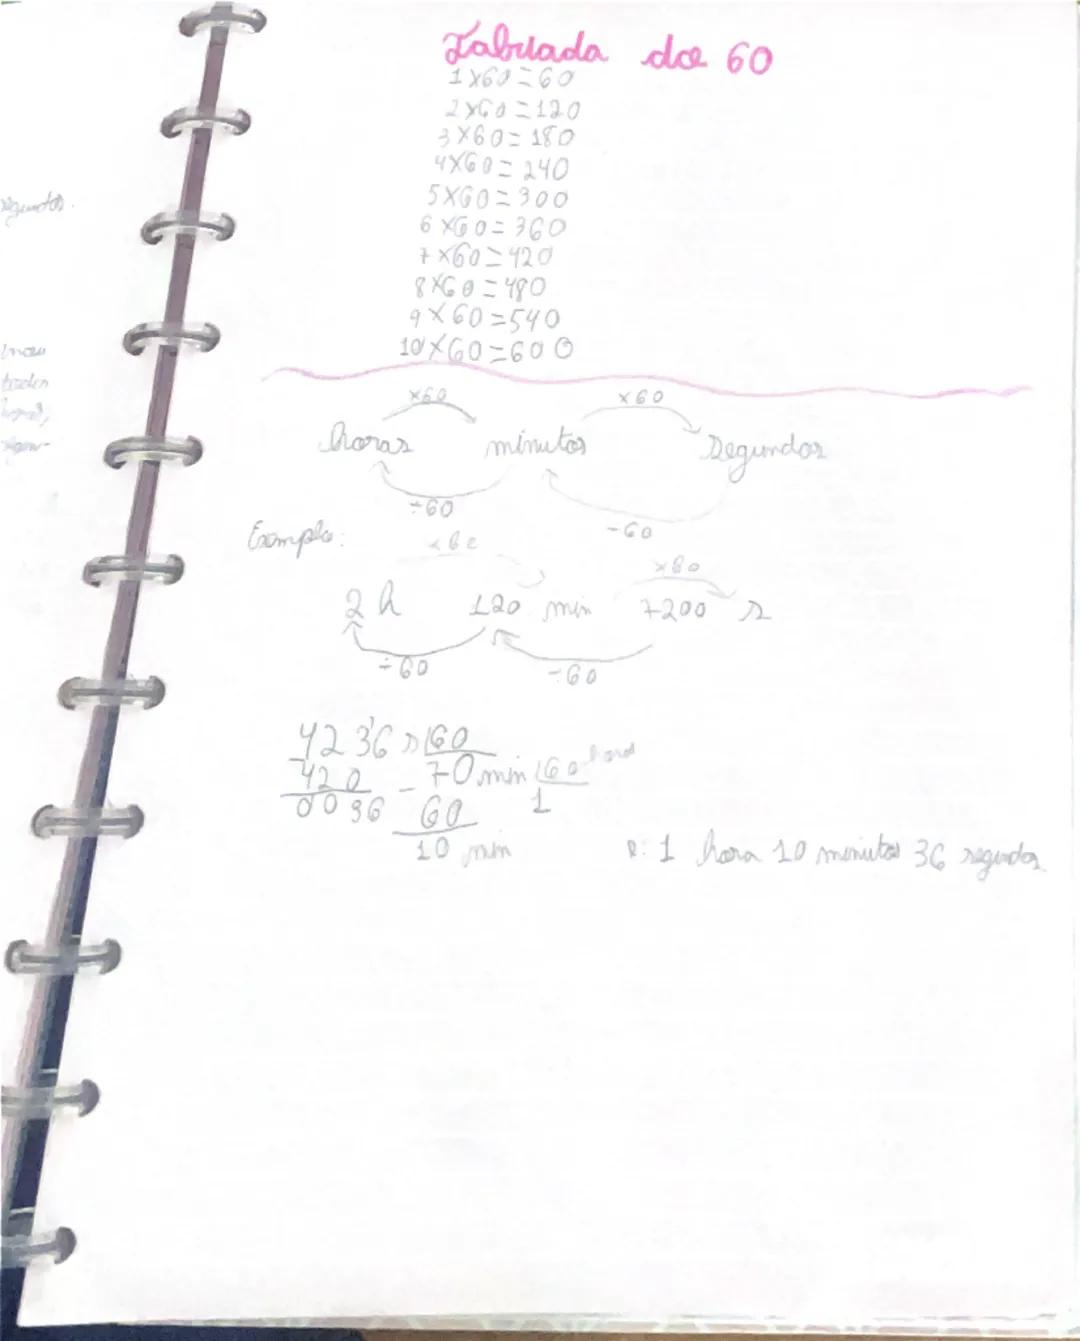 Tabuada do 60
1x60=60
2x60=120
3x60=180
4x60=240
5x60=300
6x60=360
7x60=420
8x60=480
9x60=540
10x60=600
x60 x60
horas minutos segundos
÷60 ÷60
Exemplo:
x60 x60
2 h 120 min 7200 s
÷60 ÷60
4236 s 60
-420 70 min 60 horas
0036 -60 1
10 min
R: 1 hora 10 minutos 36 segundos
segundos.